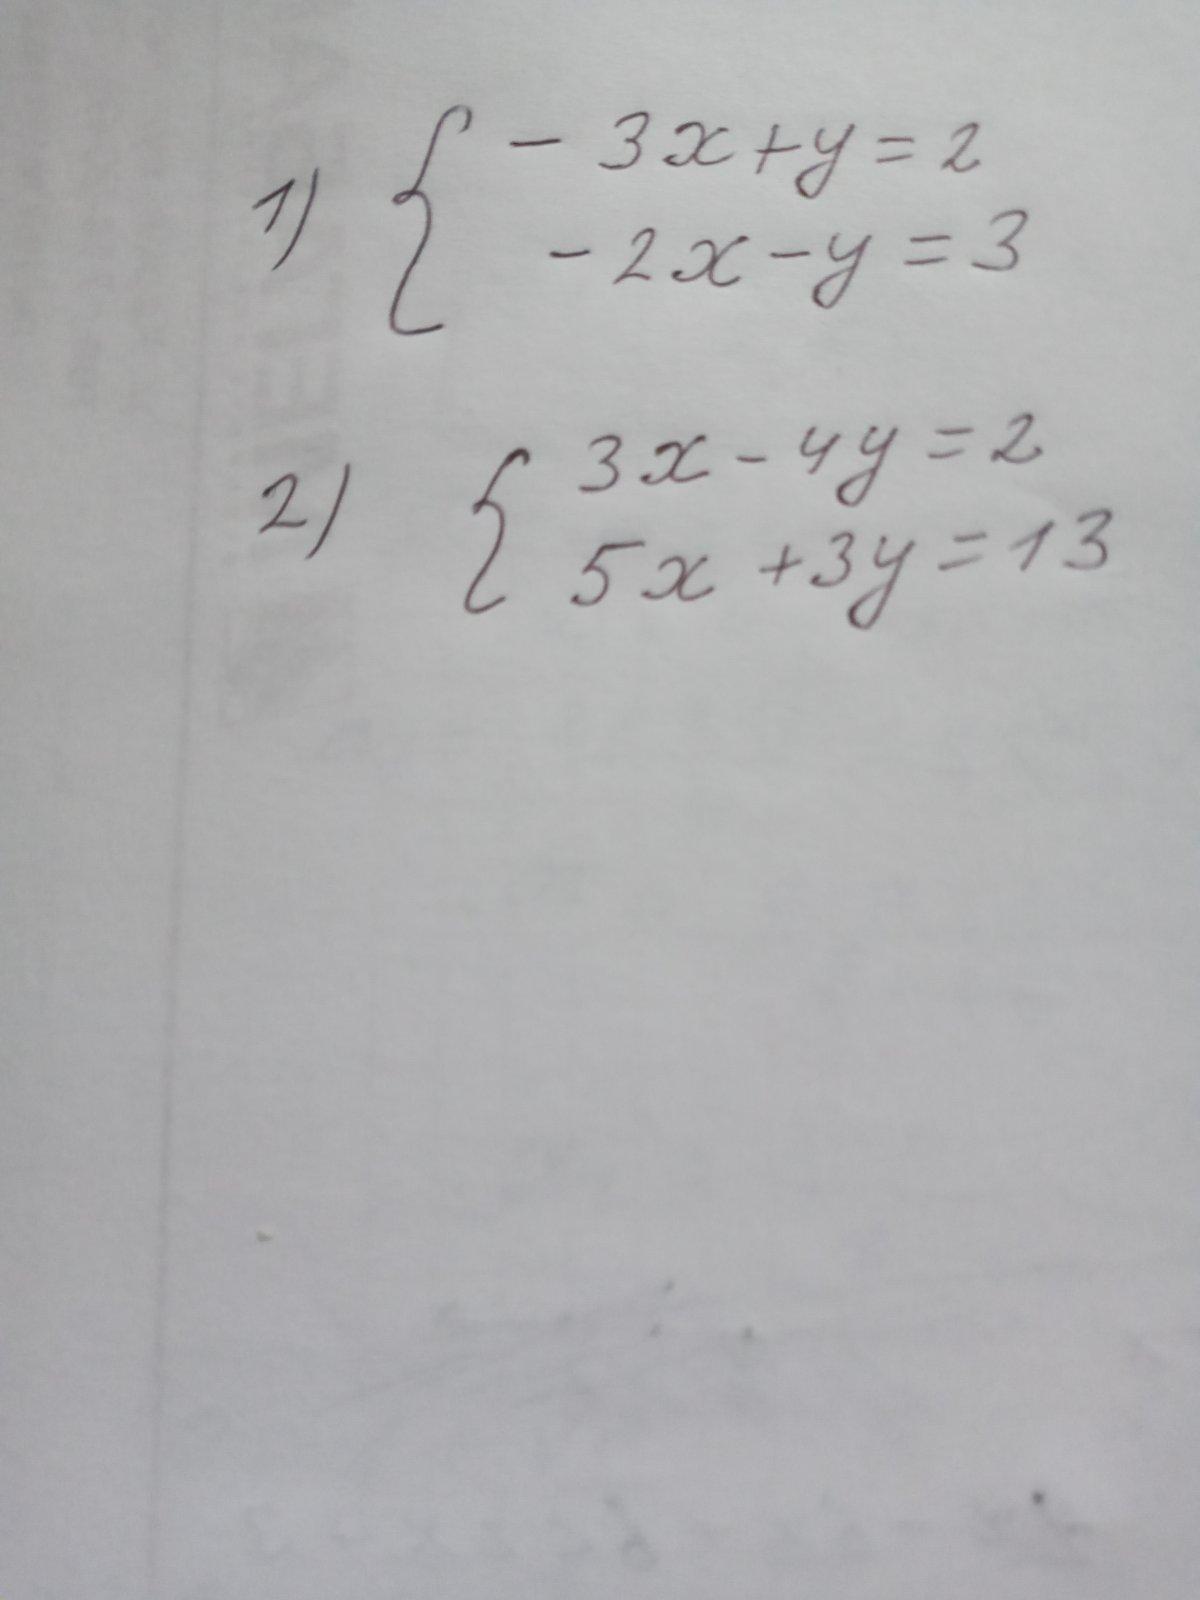 1) { - 3x + y = 2
- 2x - y = 3
2) { 3x - 4y = 2
5x + 3y = 13